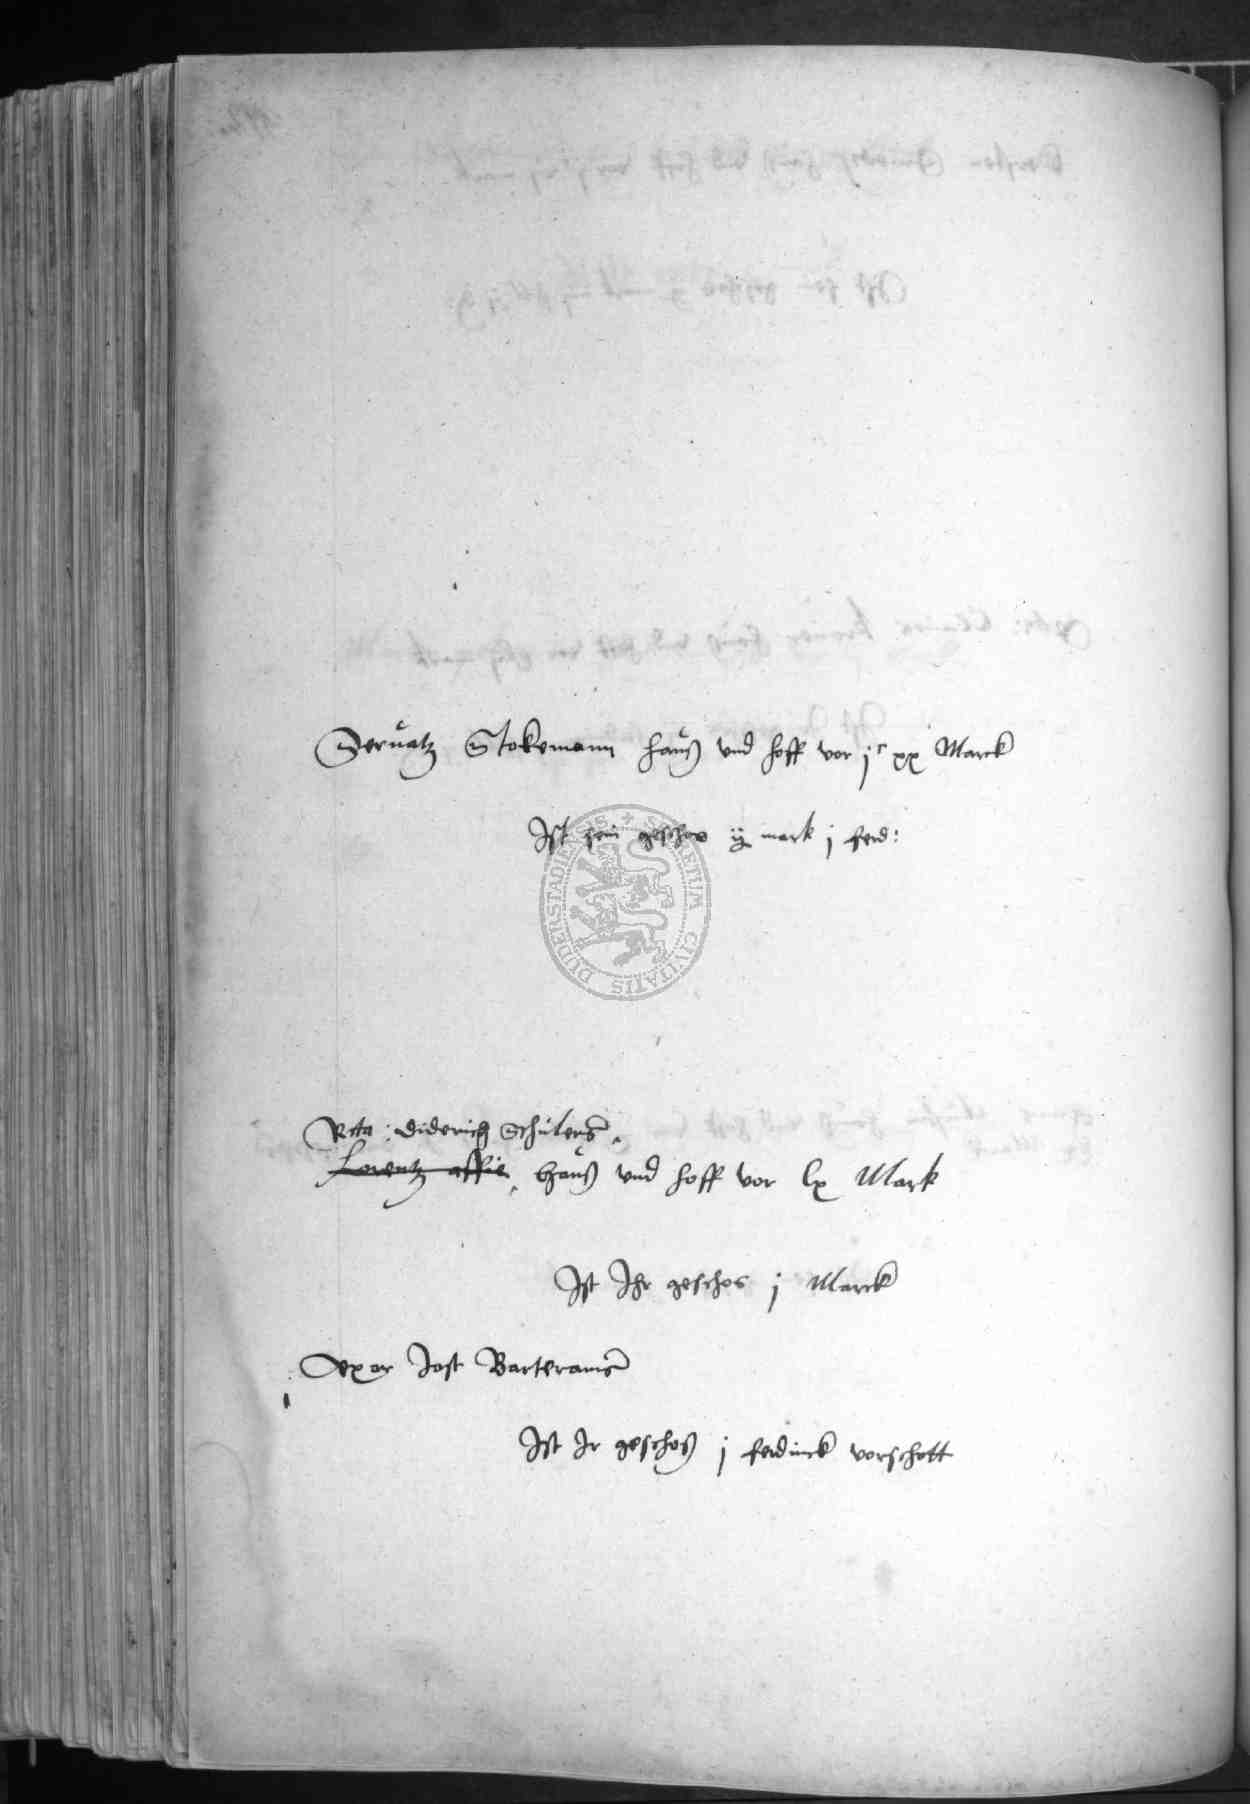 Seruatz Stokemann hauß vnd hoff vor jc xx Marck
Ist sein geschos ij mark j ferd:
SECRETUM CIVITATIS DUDERSTADIENSIS
Rcta: Diderich Schulers
Lorentz haus vnd hoff vor lx Mark
Ist Ihr geschos j Marck
Vxor Jost Barterams
Ist Ir geschoß j ferdinck vorschott